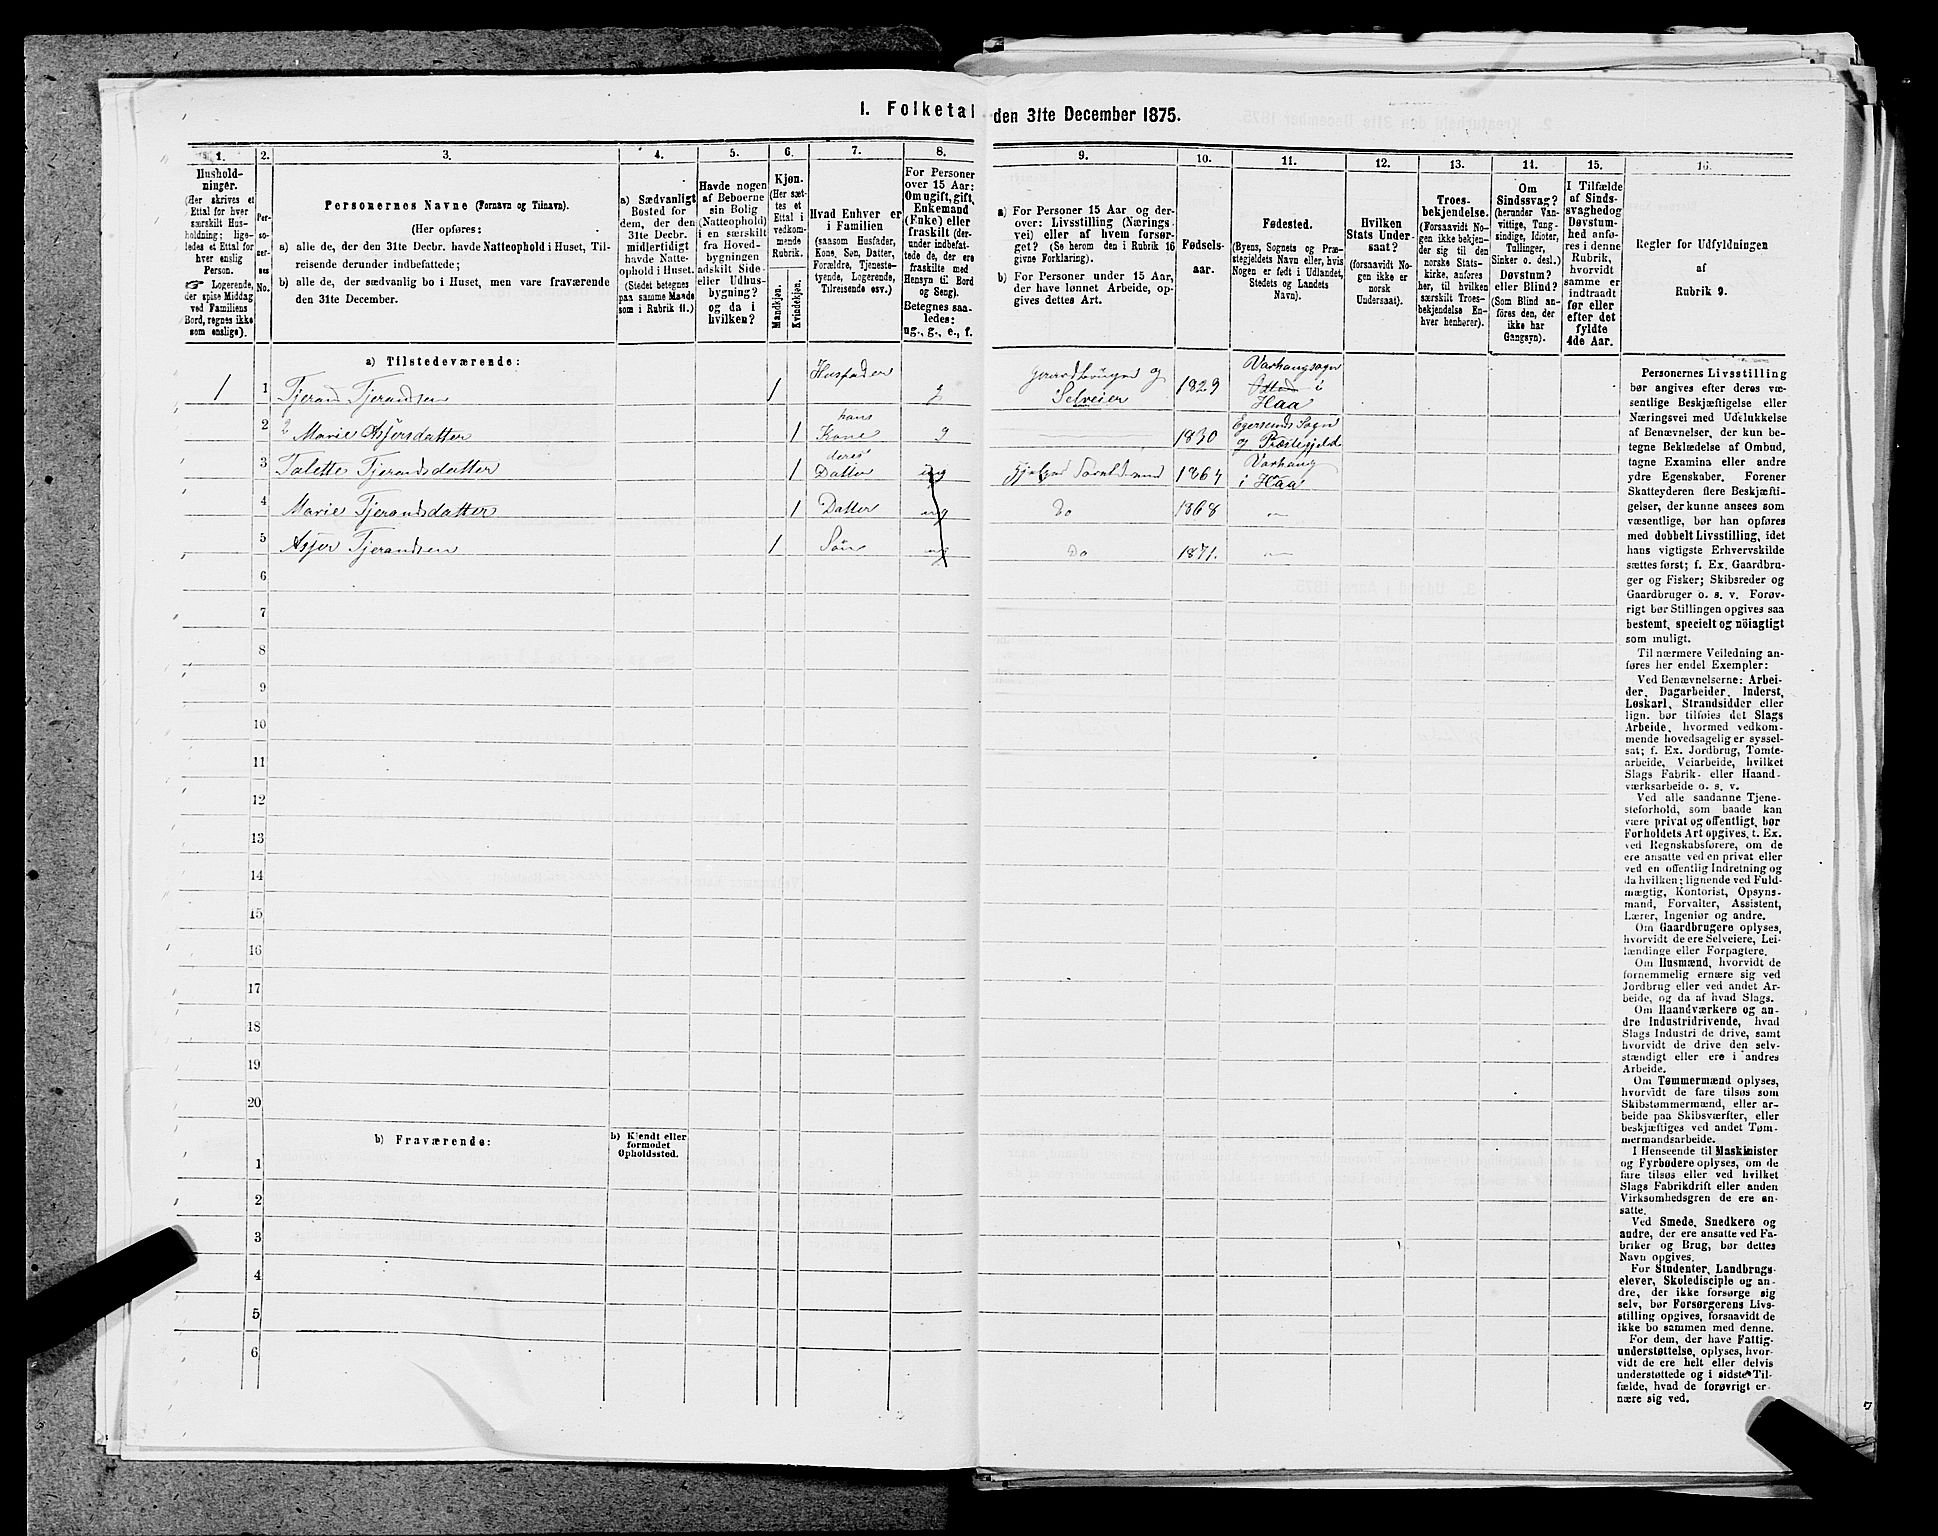 1. Folketal den 31te December 1875.
1.
2.
3.
4.
5.
6.
7.
8.
9.
10.
11.
12.
13.
14.
15.
16.
Hushold-
ninger.
(Her skrives et
Ettal for hver
særskilt Hus-
holdning; lige-
ledes et Ettal for
hver enslig
Person.
☞ Logerende,
der spise Middag
ved Familiens
Bord, regnes ikke
som enslige).
Per-
so-
ner-
nes
No.
Personernes Navne (Fornavn og Tilnavn).
(Her opføres:
a) alle de, der den 31te Decbr. havde Natteophold i Huset, Til-
reisende derunder indbefattede;
b) alle de, der sædvanlig bo i Huset, men vare fraværende
den 31te December.
a) Sædvanligt
Bosted for
dem, der den
31te Decbr.
midlertidigt
havde Natte-
ophold i Huset.
(Stedet betegnes
paa samme Maade
som i Rubrik 11.)
Havde nogen
af Beboerne
sin Bolig
(Natteophold)
i en særskilt
fra Hoved-
bygningen
adskilt Side-
eller Udhus-
bygning?
og da i
hvilken?
Kjøn.
(Her sæt-
tes et
Ettal i
vedkom-
mende
Rubrik.
Mandkjøn.
Kvindekjøn.
Hvad Enhver er
i Familien
(saasom Husfader,
Kone, Søn, Datter,
Forældre, Tjeneste-
tyende, Logerende,
Tilreisende osv.)
For Personer
over 15 Aar:
Om ugift, gift,
Enkemand
(Enke) eller
fraskilt (der-
under indbefat-
tede de, der ere
fraskilte med
Hensyn til Bord
og Seng).
Betegnes saa-
ledes:
ug., g., e., f.
a) For Personer 15 Aar og der-
over: Livsstilling (Nærings-
vei) eller af hvem forsør-
get? (Se herom den i Rubrik 16
givne Forklaring).
b) For Personer under 15 Aar,
der have lønnet Arbeide, op-
gives dettes Art.
Fødsels-
aar.
Fødested.
(Byens, Sognets og Præ-
stegjeldets Navn eller, hvis
Nogen er født i Udlandet,
Stedets og Landets
Navn).
Hvilken
Stats Under-
saat?
(forsaavidt No-
gen ikke er
norsk
Undersaat).
Troes-
bekjendelse.
(Forsaavidt No-
gen ikke bekjen-
der sig til den
norske Stats-
kirke, anføres
her, til hvilken
særskilt Troes-
bekjendelse En-
hver henhører).
Om
Sindssvag?
(herunder Van-
vittige, Tung-
sindige, Idioter,
Tullinger,
Sinker o. desl.)
Døvstum?
eller Blind?
(Som Blind an-
føres den, der
ikke har
Gangsyn).
I Tilfælde
af Sinds-
svaghed og
Døvstum-
hed anfø-
res i denne
Rubrik,
hvorvidt
samme er
indtraadt
før eller
efter det
fyldte
4de Aar.
Regler for Udfyldningen
af
Rubrik 9.
a) Tilstedeværende:
1
1 Tjerand Tjerandsen 1 Husfader g Gaardbruger og Selveier 1829 Varhaugsogn i Haa
2 Marie Asfersdatter 1 hans Kone g 1830 Egersunds Sogn og Præstegjeld
3 Talette Tjerandsdatter 1 deres Datter ug 1864 Varhaug i Haa
4 Marie Tjerandsdatter 1 Datter ug Do 1868 —
5 Asfer Tjerandsen 1 Søn ug Do 1871. —
6
7
8
9
10
11
12
13
14
15
16
17
18
19
20
b) Fraværende:
b) Kjendt eller
formodet
Opholdssted.
1
2
3
4
5
6
Personernes Livsstilling
bør angives efter deres væ-
sentlige Beskjæftigelse eller
Næringsvei med Udelukkelse
af Benævnelser, der kun be-
tegne Beklædelse af Ombud,
tagne Examina eller andre
ydre Egenskaber. Forener
Skatteyderen flere Beskjæfti-
gelser, der kunne ansees som
væsentlige, bør han opføres
med dobbelt Livsstilling, idet
hans vigtigste Erhvervskilde
sættes først; f. Ex. Gaardbru-
ger og Fisker; Skibsreder og
Gaardbruger o. s. v. Forøv-
rigt bør Stillingen opgives saa
bestemt, specielt og nöiagtigt
som muligt.
Til nærmere Veiledning an-
føres her endel Exempler:
Ved Benævnelserne: Arbei-
der, Dagarbeider, Inderst,
Løskarl, Strandsidder eller
lign. bør tilføies det Slags
Arbeide, hvormed vedkom-
mende hovedsagelig er syssel-
sat; f. Ex. Jordbrug, Tomte-
arbeide, Veiarbeide, hvilket
Slags Fabrik- eller Haand-
værksarbeide o. s. v.
Ved alle saadanne Tjene-
steforhold, som baade kan
være privat og offentligt, bør
Forholdets Art opgives, t. Ex.
ved Regnskabsførere, om de
ere ansatte ved en privat eller
ved en offentlig Indretning og
da hvilken; lignende ved Fuld-
mægtig, Kontorist, Opsyns-
mand, Forvalter, Assistent,
Lærer, Ingeniør og andre.
Om Gaardbrugere oplyses,
hvorvidt de ere Selveiere, Lei-
lændinge eller Forpagtere.
Om Husmænd, hvorvidt de
fornemmelig ernære sig ved
Jordbrug eller ved andet Ar-
beide, og da af hvad Slags.
Om Haandværkere og an-
dre Industridrivende, hvad
Slags Industri de drive, samt
hvorvidt de drive den selv-
stændigt eller ere i andres
Arbeide.
Om Tømmermænd oplyses,
hvorvidt de fare tilsøs som
Skibstømmermænd, eller ar-
beide paa Skibsværfter, eller
beskjæftiges ved andet Tøm-
mermandsarbeide.
I Henseende til Maskinister
og Fyrbødere oplyses, om de
fare tilsøs eller ved hvilket
Slags Fabrikdrift eller anden
Virksomhedsgren de ere an-
satte.
Ved Smede, Snedkere og
andre, der ere ansatte ved Fa-
briker og Brug, bør dettes
Navn opgives.
For Studenter, Landbrugs-
elever, Skoledisciple og an-
dre, der ikke forsørge sig
selv, bør Forsørgerens Livs-
stilling opgives, forsaavidt de
ikke bo sammen med denne.
For dem, der have Fattig-
understøttelse, oplyses, hvor-
vidt de ere helt eller delvis
understøttede og i sidste Til-
fælde, hvad de forøvrigt er-
nære sig ved.